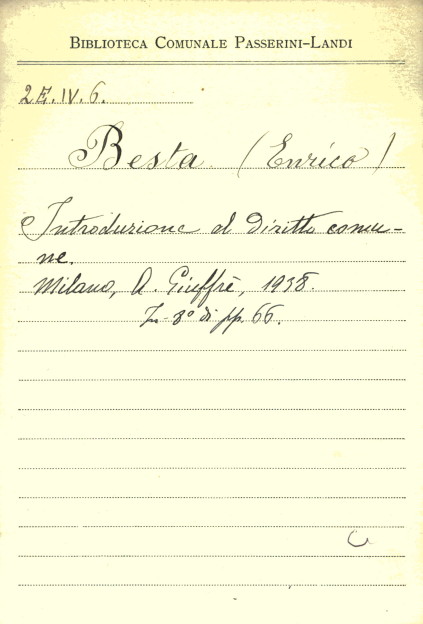 Biblioteca Comunale Passerini-Landi
2E.IV.6.
Besta (Enrico)
Introduzione al diritto comu-
ne.
Milano, A. Giuffrè, 1938.
In-8° di pp. 66.